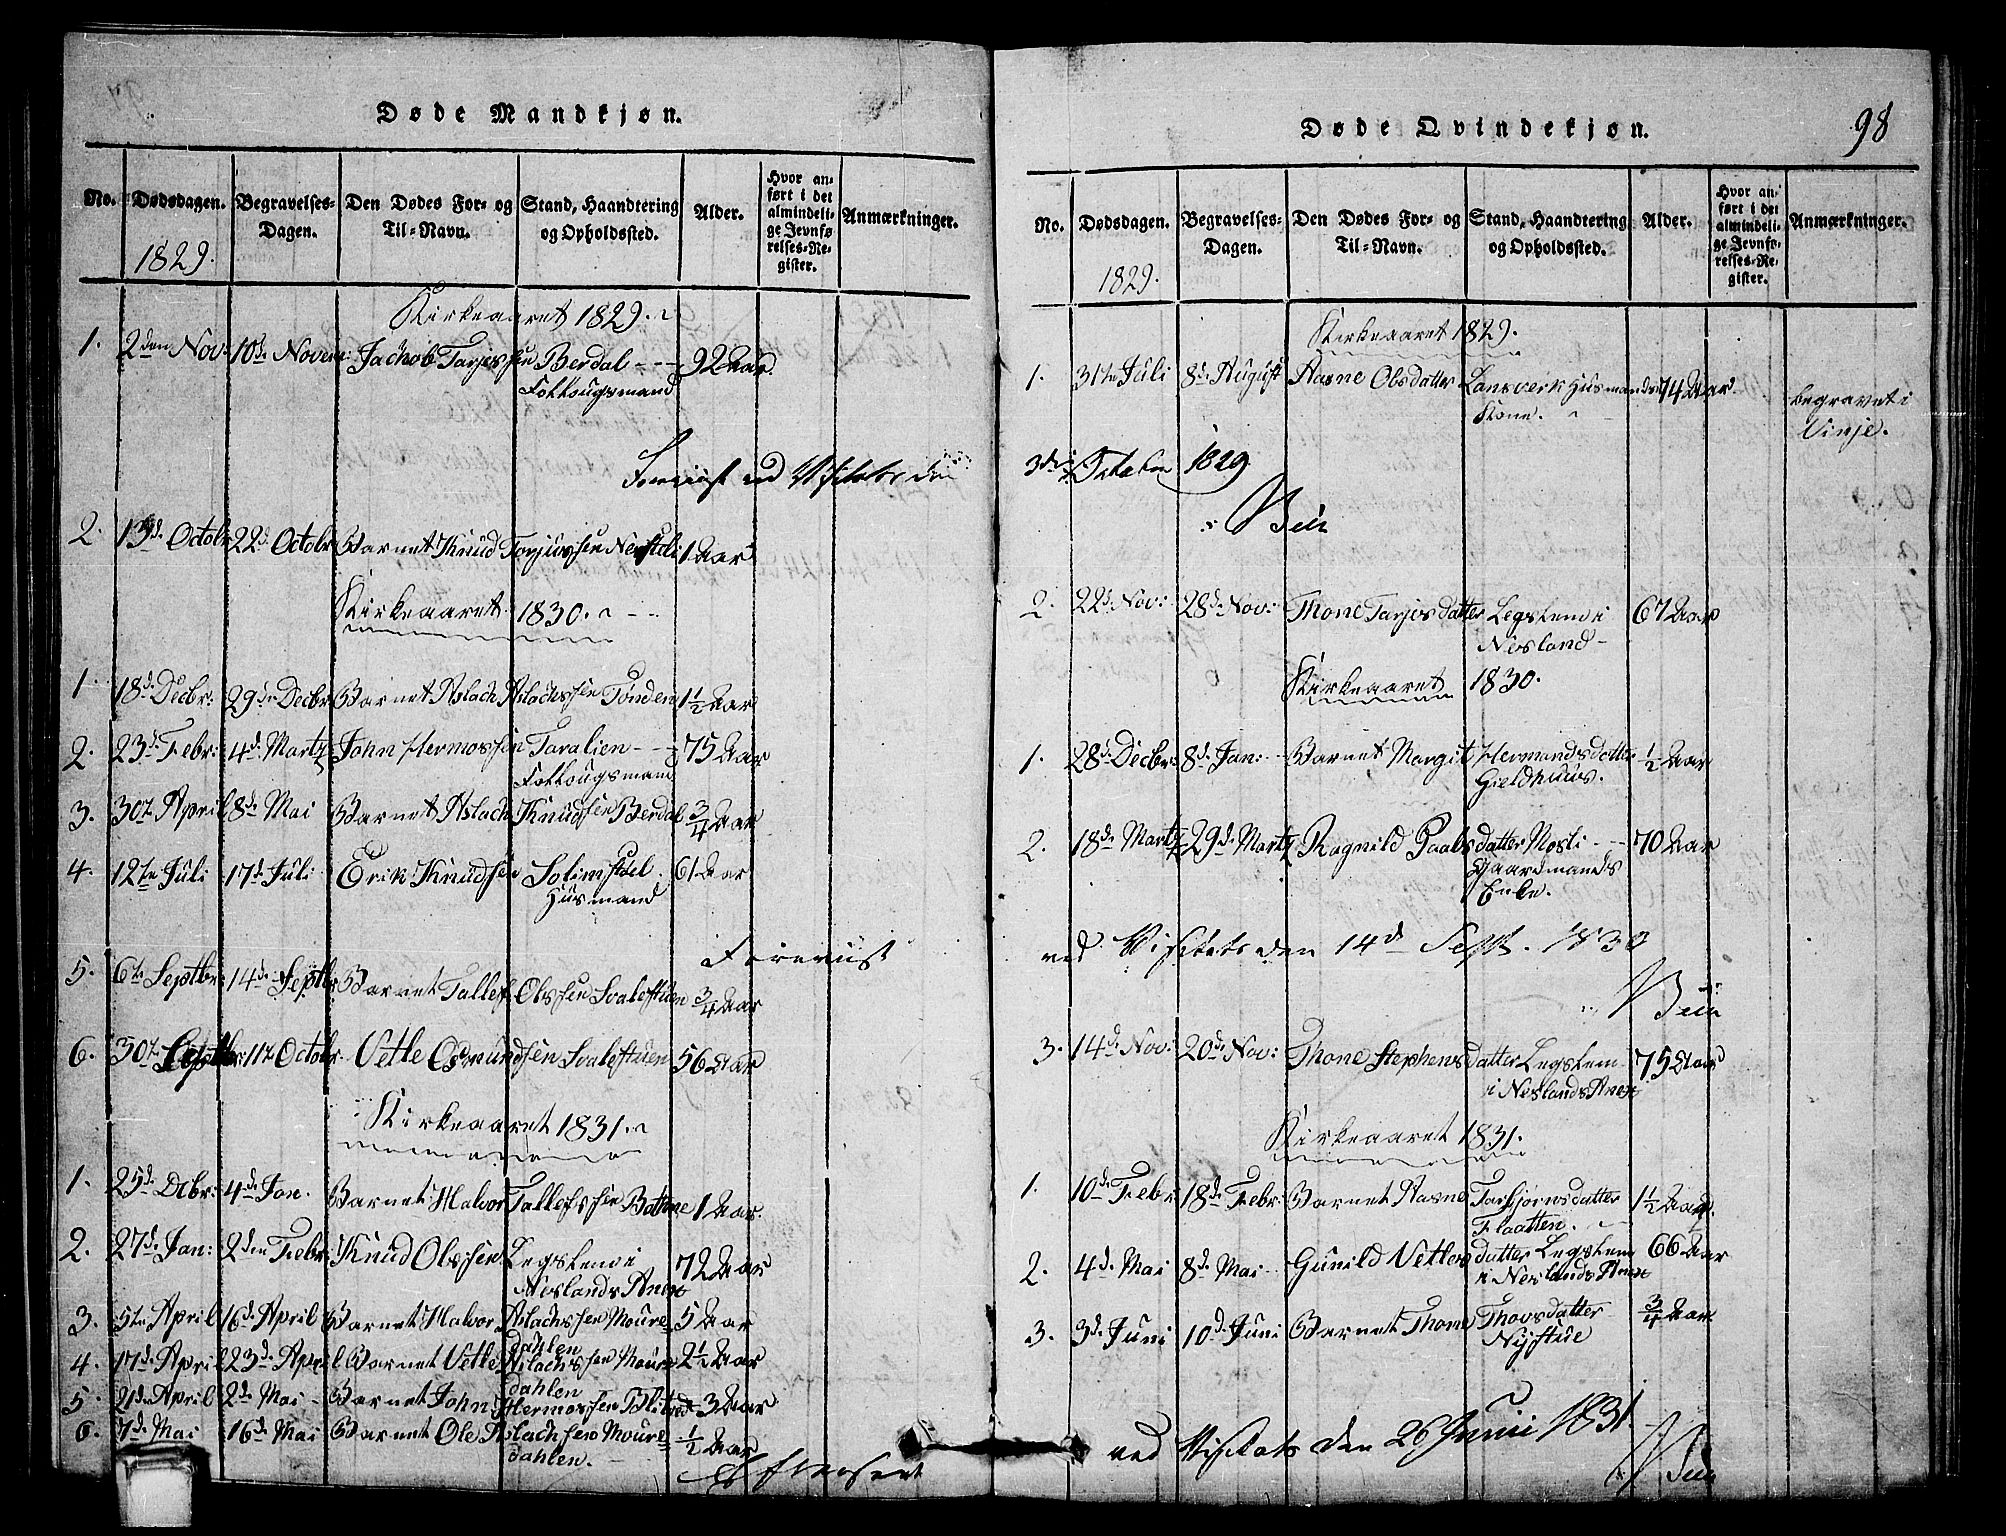 Døde Mandkjøn.
No. Dødsdagen. Begravelses-Dagen. Den Dødes For- og Til-Navn. Stand, Haandtering og Opholdssted. Alder. Hvor anført i det almindelige Jevnførelses-Register. Anmærkninger.
1829.
Kirkeaaret 1829.
1. 2den Nov: 10de Novem: Jachob Tarjessen Berdal 92 Aar
Folkougsmand
ved Visitats den
2. 13d. Octobr 22d. Octobr Barnet Knud Torjussen Nerstuli 1 Aar
Kirkeaaret 1830.
1. 18d. Decbr: 29de Decbr Barnet Aslach Aslachssen Tonden 1½ Aar
2. 23d. Febr: 4d. Martz John Hermossen Taralien 75 Aar
Folkougsmand
3. 30t. April 8d. Mai Barnet Aslach Knudsen Berdal ¾ Aar
4. 12te Juli 17d. Juli Erik Knudsen 61 Aar
Husmand
Foreviist
5. 6te Septbr: 14de Septbr Barnet Tallef Olssen Svalestuen ¾ Aar
6. 30t. Septbr: 11t. Octobr. Vetle Osmundsen Svalestuen 56 Aar
Kirkeaaret 1831.
1. 25d. Dcbr: 4d. Jan. Barnet Halvor Tallefssen Bothne 1 Aar.
2. 27d. Jan: 2den Febr: Knud Olssen Legslem i 72 Aar
Neslands Anex
3. 5te April 16d. April Barnet Halvor Aslachssen Moure= 5 Aar
dahlen
4. 17d. April 23d. April Barnet Vetle Aslachssen Moure= 2½ Aar
dahlen
5. 21de April 2d. Mai Barnet John Hermossen 3 Aar
6. 7d. Mai 16d. Mai Barnet Ole Aslachsen Moure= ½ Aar
dahlen.
Efterseet
98
Døde Qvindekjøn.
No. Dødsdagen. Begravelses-Dagen. Den Dødes For- og Til-Navn. Stand, Haandtering og Opholdssted. Alder. Hvor anført i det almindelige Jevnførelses-Register. Anmærkninger.
1829.
Kirkeaaret 1829.
1. 31te Juli 8d. August Aasne Olsdatter Lansverk Husmands 74 Aar begravet i
Kone. Vinje.
3die October 1829
2. 22d. Nov: 28d. Nov: Thone Tarjesdatter Legslem i 67 Aar
Nesland
Kirkeaaret 1830.
1. 28d. Decbr: 8d. Jan: Barnet Margit Hermandsdatter ½ Aar
Gieldhuus.
2. 18d. Martz 29d. Martz Ragnild Paalsdatter Mosli 70 Aar
Gaardmands
Enke.
ved Visitats den 14d Sept. 1830
3. 14d. Nov: 20d. Nov: Thone Stephensdatter Legslem 75 Aar
i Neslands Anex
Kirkeaaret 1831.
1. 10d. Febr 18d. Febr: Barnet Aasne Torbjørnsdatter 1½ Aar.
Flaatten.
2. 4d. Mai 8d. Mai Gunild Vetlesdatter Legslem 66 Aar
i Neslands Anex
3. 3d. Juni 10d. Juni Barnet Thone Thovsdatter ¾ Aar
Nystue
ved Visitats den 26 Junii 1831